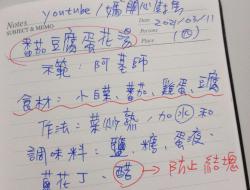 youtube/媽關心對馬
Notes
SUBJECT & MEMO
Date 2021/03/11
Persons (四)
Place
番茄豆腐蛋花湯
示範:阿基師
食材:小白菜、番茄、雞蛋、豆腐
作法:菜炒熟,加水和
調味料:鹽、糖、蛋液、
蔥花丁、醋→防止結塊